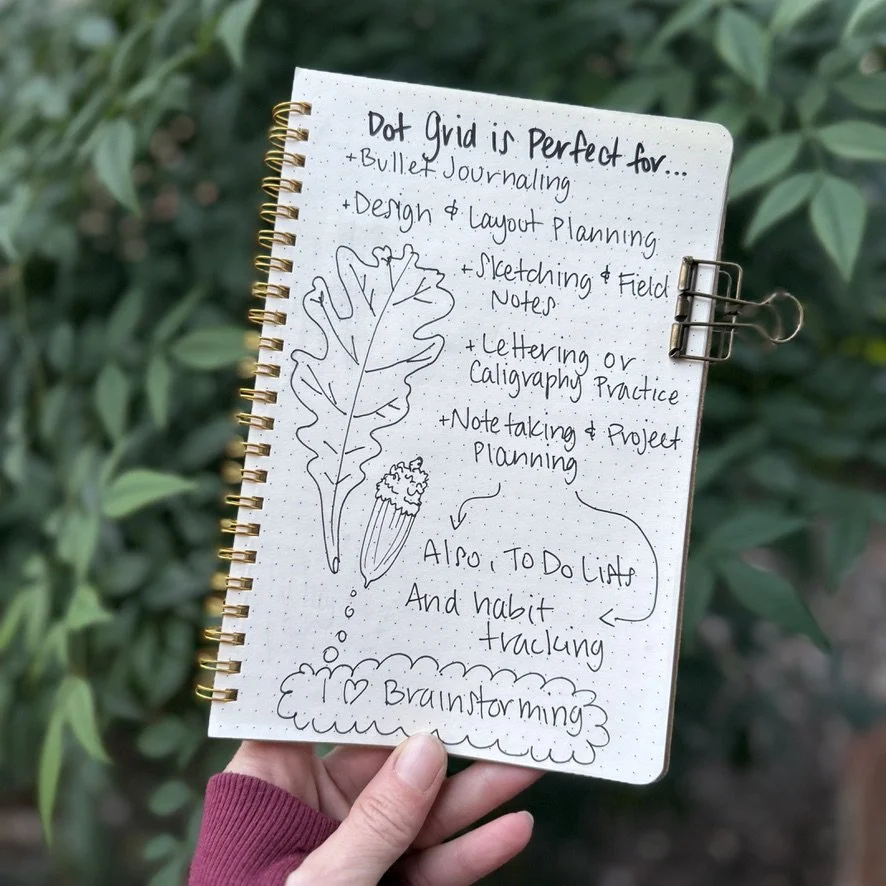 Dot grid is Perfect for...
+Bullet Journaling
+Design & Layout Planning
+Sketching & Field
Notes
+Lettering or
Caligraphy Practice
+Notetaking & Project
Planning
Also, To Do Lists
And habit
tracking
I ♡ Brainstorming